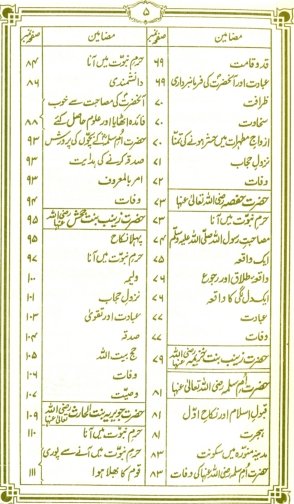 ۵
مضامین
صفحہ نمبر
قد و قامت ۶۹
عبادت اور آنحضرتؐ کی فرمانبرداری ۶۹
ظرافت ۷۰
سخاوت ۷۰
ازواج مطہرات میں حشر ہونے کی تمنا ۷۰
نزول حجاب ۷۱
وفات ۷۲
حضرت حفصہ رضی اللہ تعالیٰ عنہا ۷۳
حرم نبوت میں آنا ۷۳
مصاحبت رسول اللہ صلی اللہ علیہ وسلم ۷۴
ایک واقعہ ۷۵
واقعہ طلاق اور رجوع ۷۶
ایک دل لگی کا واقعہ ۷۶
عبادت ۷۷
وفات ۷۷
حضرت زینب بنت خزیمہ رضی اللہ عنہا ۷۹
حضرت ام سلمہ رضی اللہ تعالیٰ عنہا ۸۱
قبول اسلام اور نکاح اول ۸۱
ہجرت ۸۱
مدینہ منورہ میں سکونت ۸۳
حضرت ام سلمہ رضی اللہ عنہا کی وفات ۸۳
مضامین
صفحہ نمبر
حرم نبوت میں آنا ۸۴
دانشمندی ۸۶
آنحضرتؐ کی مصاحبت سے خوب
فائدہ اٹھایا اور علوم حاصل کئے ۸۸
حضرت ام سلمہؓ کے بچوں کی پرورش ۹۳
صدقہ کرنے کی ہدایت ۹۳
امر بالمعروف ۹۳
وفات ۹۴
حضرت زینب بنت جحش رضی اللہ عنہا ۹۵
پہلا نکاح ۹۵
حرم نبوت میں آنا ۹۷
ولیمہ ۱۰۰
نزول حجاب ۱۰۱
عبادت اور تقویٰ ۱۰۳
صدقہ ۱۰۴
حج بیت اللہ ۱۰۵
وفات ۱۰۶
وصیت ۱۰۷
حضرت جویریہ بنت الحارث رضی اللہ تعالیٰ عنہا ۱۰۹
حرم نبوت میں آنا ۱۱۰
حرم نبوت میں آنے سے پوری
قوم کا بھلا ہوا ۱۱۱